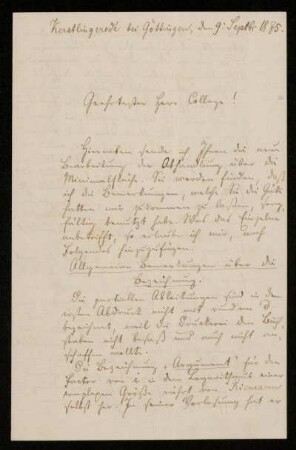 Kerstlingerode bei Göttingen, den 9. Septbr 1885.
Geehrtester Herr College!
Hierneben sende ich Ihnen die neue
Bearbeitung der Abhandlung über die
Minimalfläche. Sie werden finden, daß
ich die Bemerkungen, welche Sie die Güte
hatten mir zukommen zu lassen, sorg-
fältig benutzt habe. Was das Einzelne
anbetrifft, so erlaube ich mir, noch
Folgendes hinzuzufügen.
Allgemeine Bemerkungen über die
Bezeichnung.
Die partiellen Ableitungen sind in dem
ersten Abdruck nicht mit rundem ∂
bezeichnet, weil die Druckerei den Buch-
staben nicht besaß und auch nicht an-
schaffen wollte.
Die Bezeichnung „Argument" für den
Factor von i in dem Logarithmus einer
complexen Größe rührt von Riemann
selbst her. In seiner Vorlesung hat er